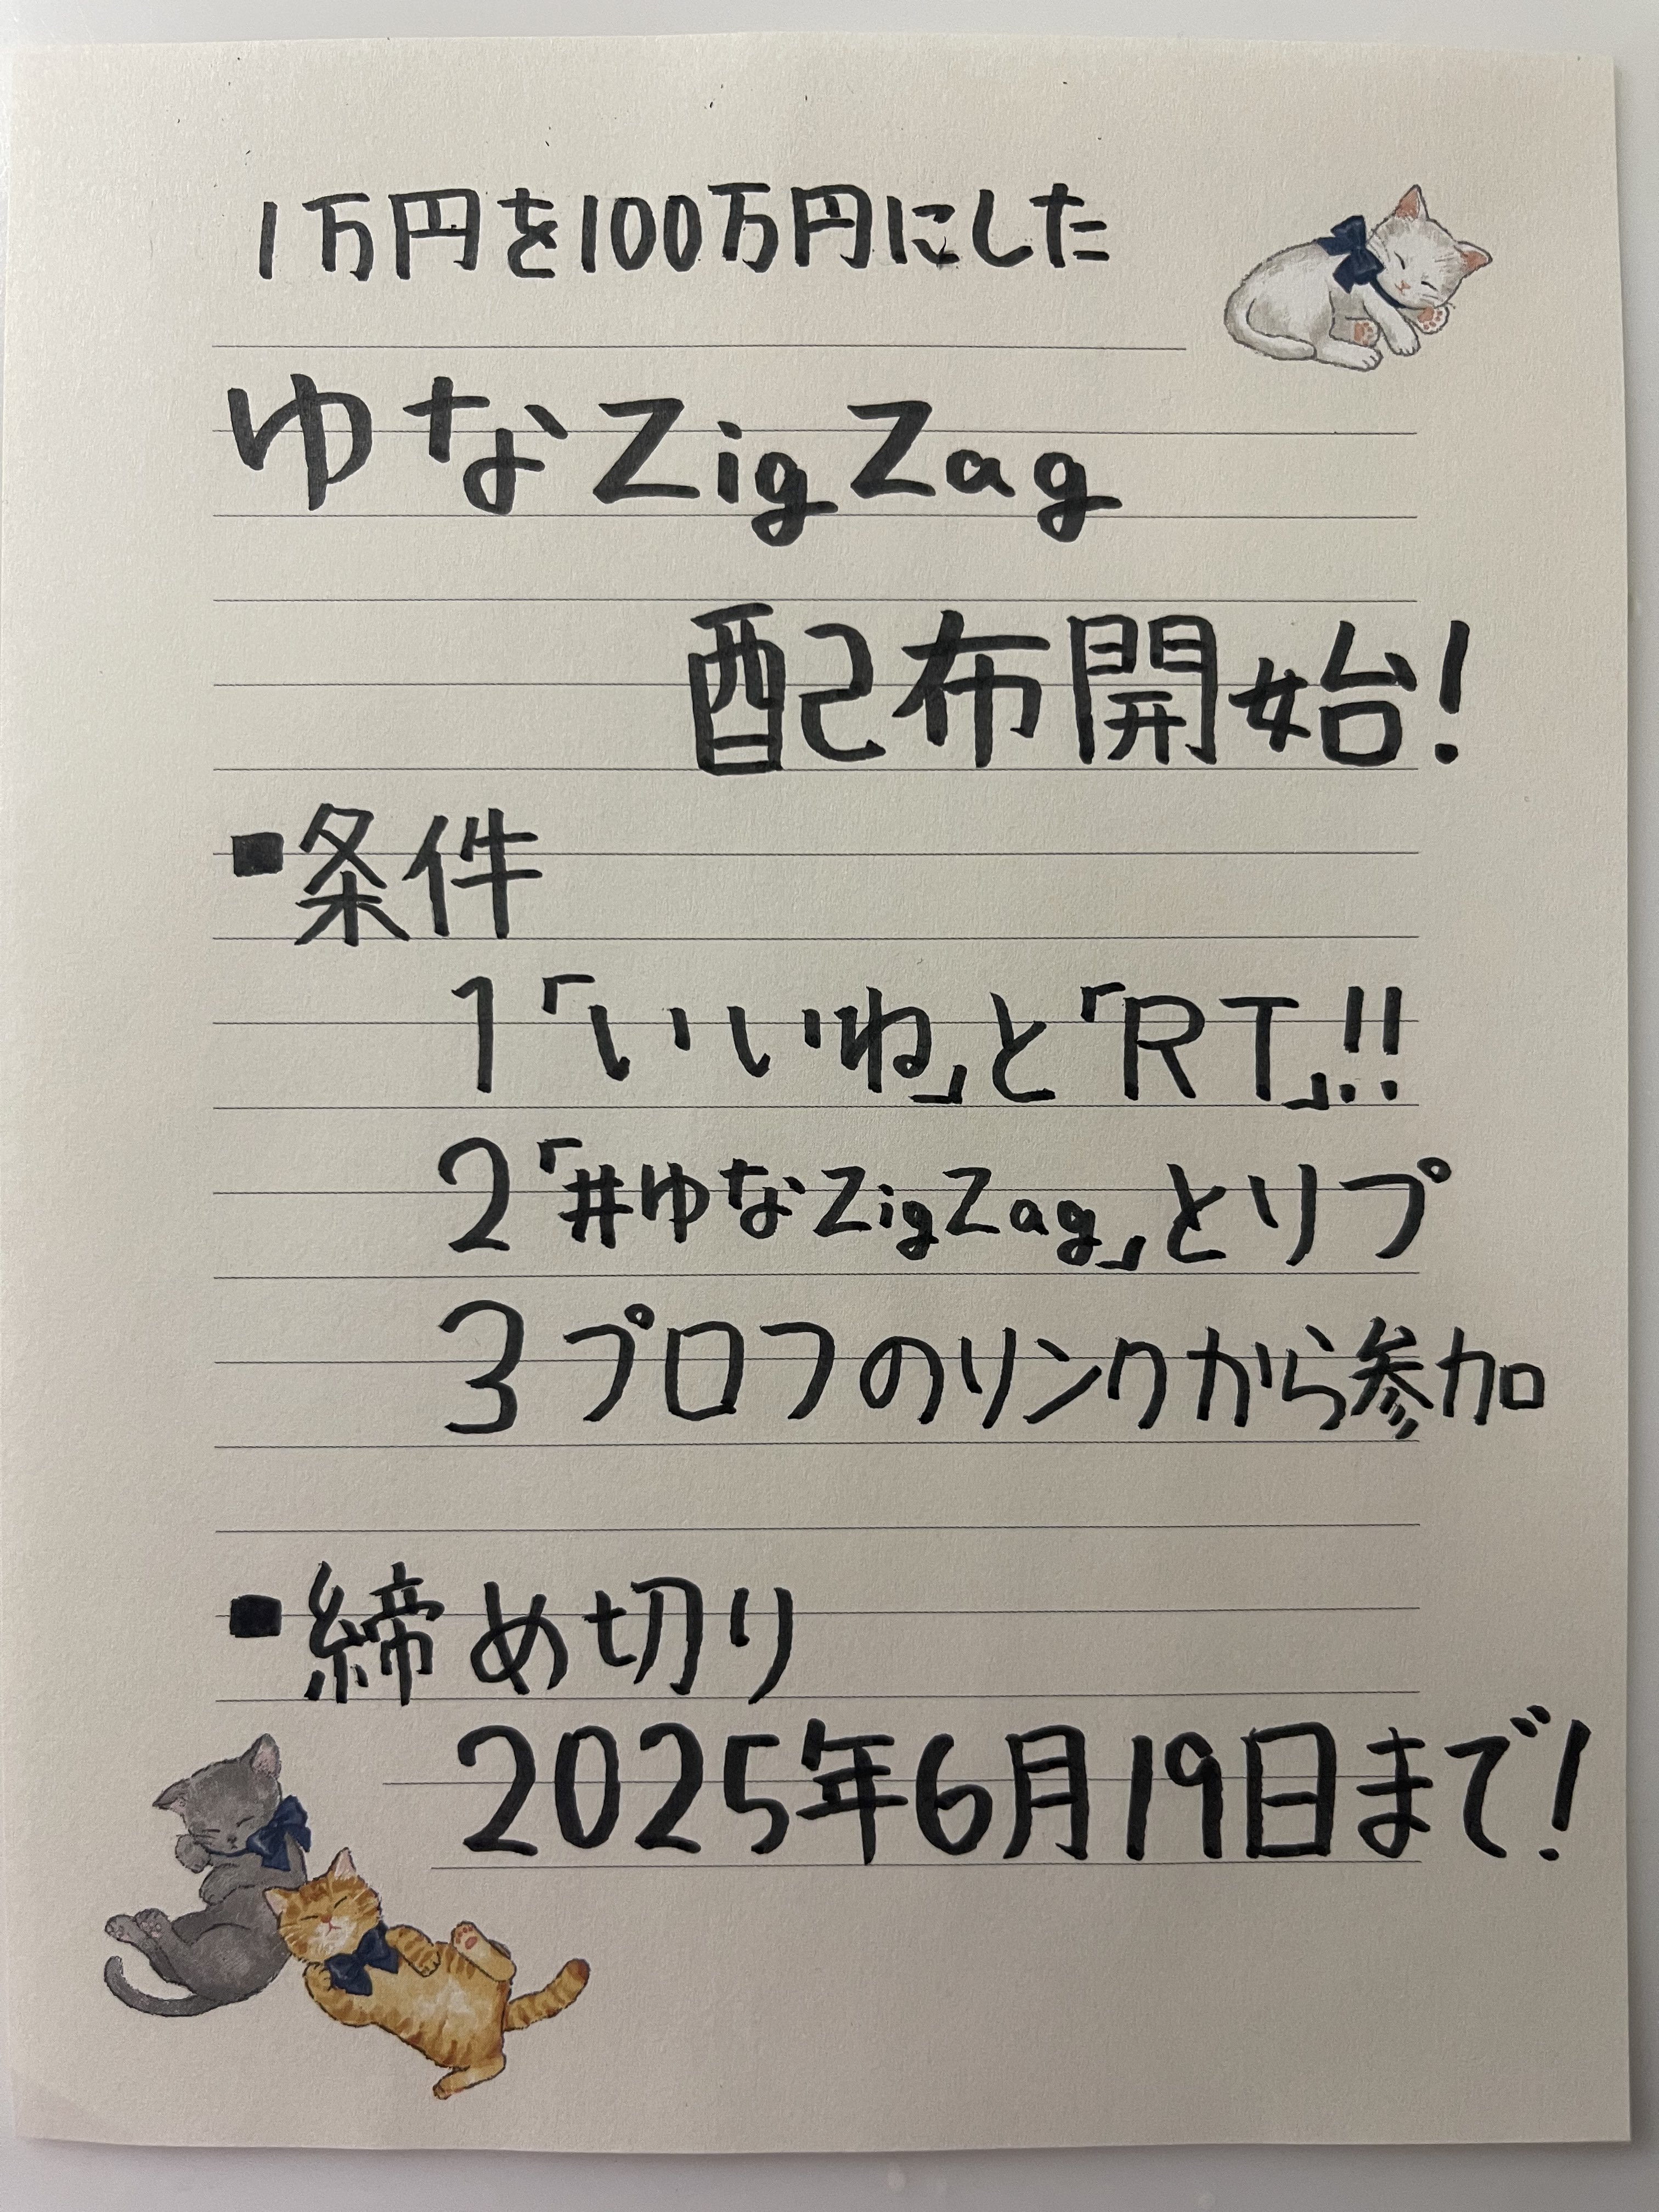 1万円を100万円にした
ゆなZigZag
配布開始!
■条件
1「いいね」と「RT」!!
2「#ゆなZigZag」とリプ
3プロフのリンクから参加
■締め切り
2025年6月19日まで!